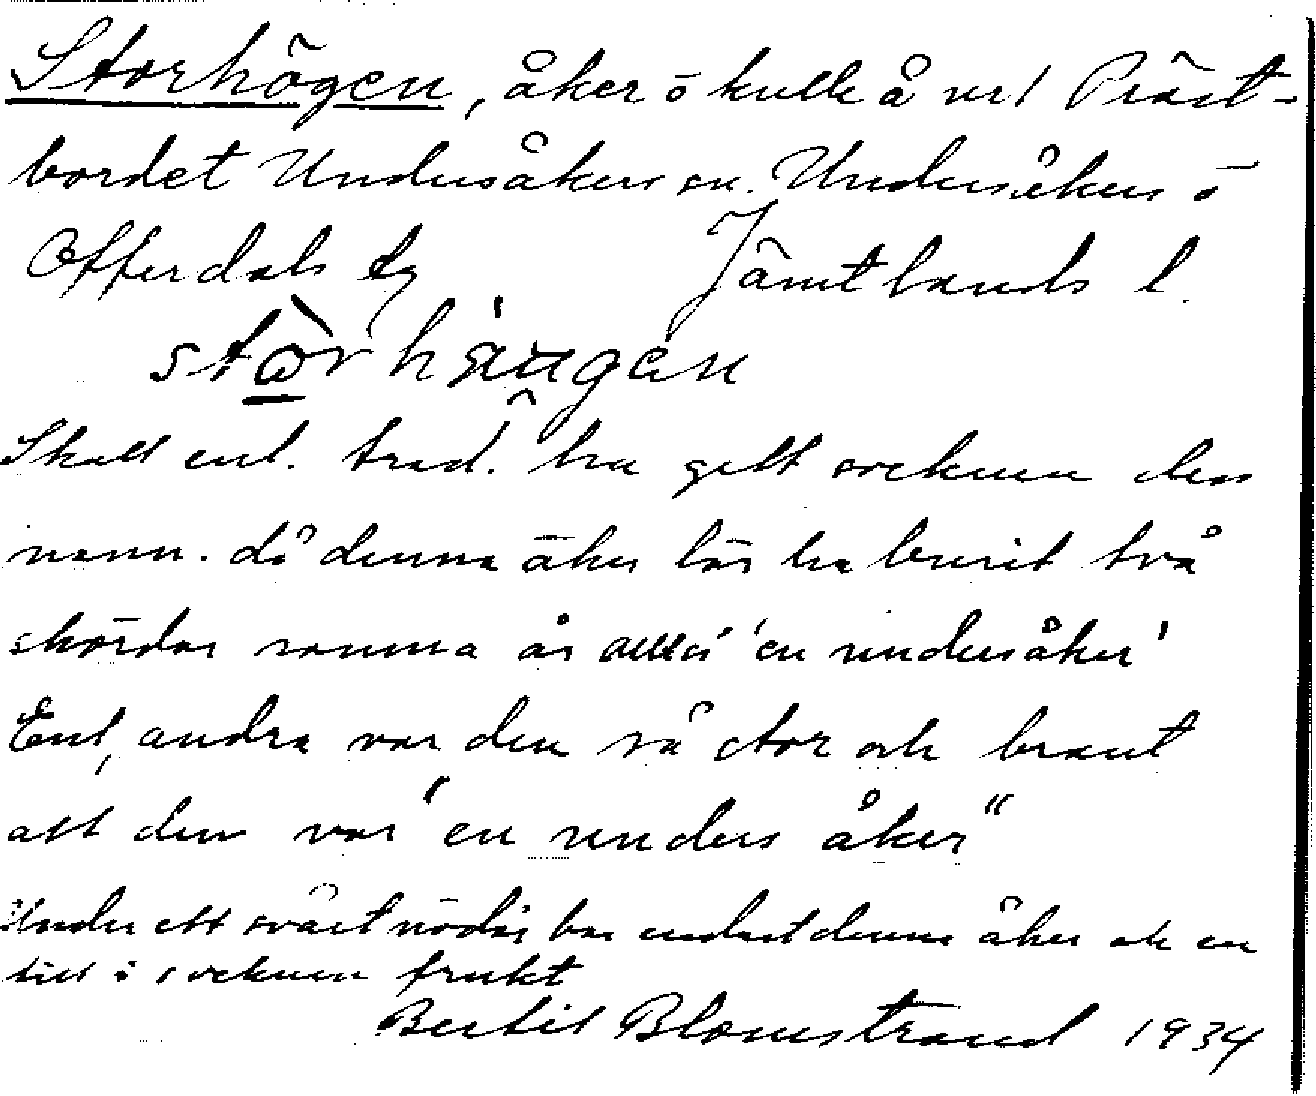 Storhögen, åker ō kulle å nr 1 Präst-
bordet Undersåkers sn. Undersåkers ō
Offerdals tg Jämtlands l.
Skall enl. trad. ha gett socknen dess
namn. då denna åker lär ha burit två
skördar samma år alltså 'en undersåker'
Enl, andra var den så stor och brant
att den var "en unders åker"
Under ett svårt nödår bar endast denna åker och en
till i socknen frukt
Bertil Blomstrand 1934